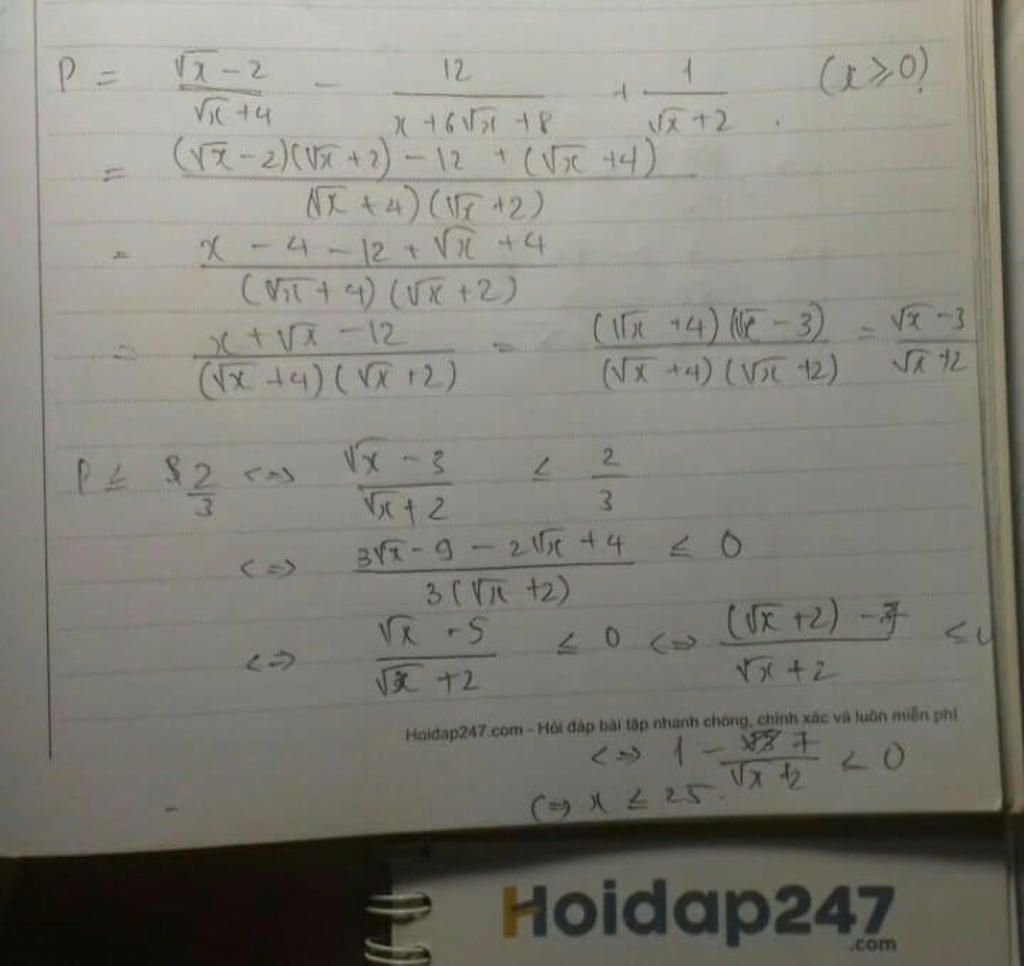 P = (√x - 2)/(√x + 4) - 12/(x + 6√x + 8) + 1/(√x + 2) . (x ≥ 0)
= ((√x - 2)(√x + 2) - 12 + (√x + 4))/((√x + 4)(√x + 2))
= (x - 4 - 12 + √x + 4)/((√x + 4)(√x + 2))
= (x + √x - 12)/((√x + 4)(√x + 2)) = ((√x + 4)(√x - 3))/((√x + 4)(√x + 2)) = (√x - 3)/(√x + 2)
P ≤ 2/3 <=> (√x - 3)/(√x + 2) ≤ 2/3
<=> (3√x - 9 - 2√x + 4)/(3(√x + 2)) ≤ 0
<=> (√x - 5)/(√x + 2) ≤ 0 <=> ((√x + 2) - 7)/(√x + 2) ≤
Hoidap247.com - Hỏi đáp bài tập nhanh chóng, chính xác và luôn miễn phí
<=> 1 - 7/(√x + 2) < 0
<=> x ≤ 25.
Hoidap247
.com